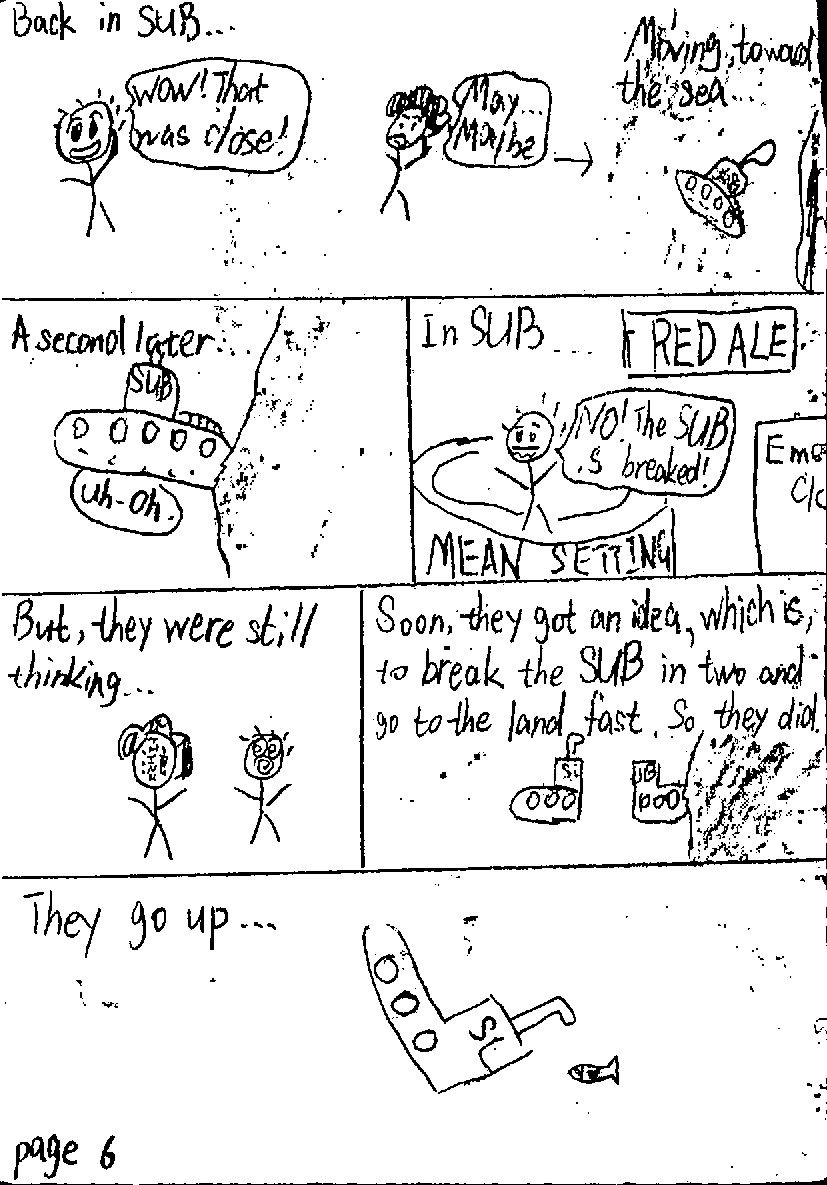 Back in SUB...
Wow! That
was close!
May...
Maybe
Moving, toward
the sea...
SUB
A second later...
SUB
Uh-Oh.
In SUB...
RED ALE
NO! The SUB
is breaked!
MEAN SETTING
But, they were still
thinking...
Soon, they got an idea, which is,
to break the SUB in two and
go to the land fast. So, they did.
They go up...
page 6